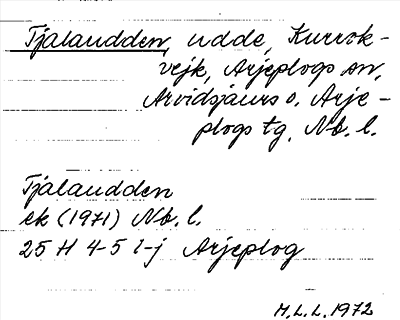 Tjålaudden, udde, Kurrok-
vejk, Arjeplogs sn,
Arvidsjaurs o. Arje-
plogs tg. Nb. l.
Tjålaudden
ek (1971) Nb. l.
25 H 4-5 i-j Arjeplog
H.L.L. 1972